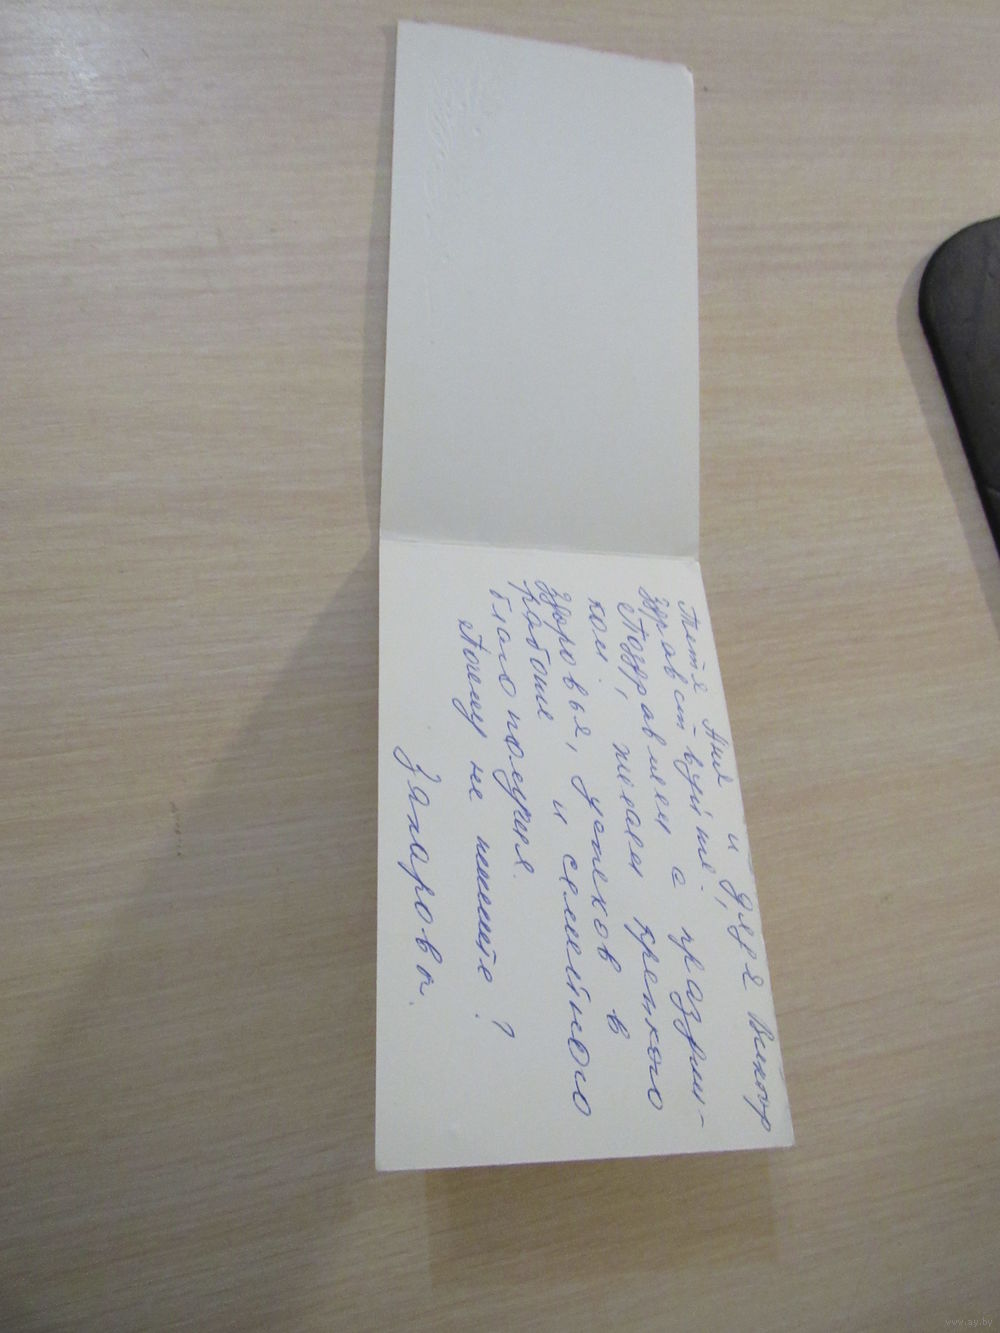 Тетя Аня и дядя Виктор
здравствуйте.
Поздравляем с праздни-
ком, желаем крепкого
здоровья, успехов в
работе и семейного
благополучия.
Почему не пишете?
Захаровы.
www.ay.by